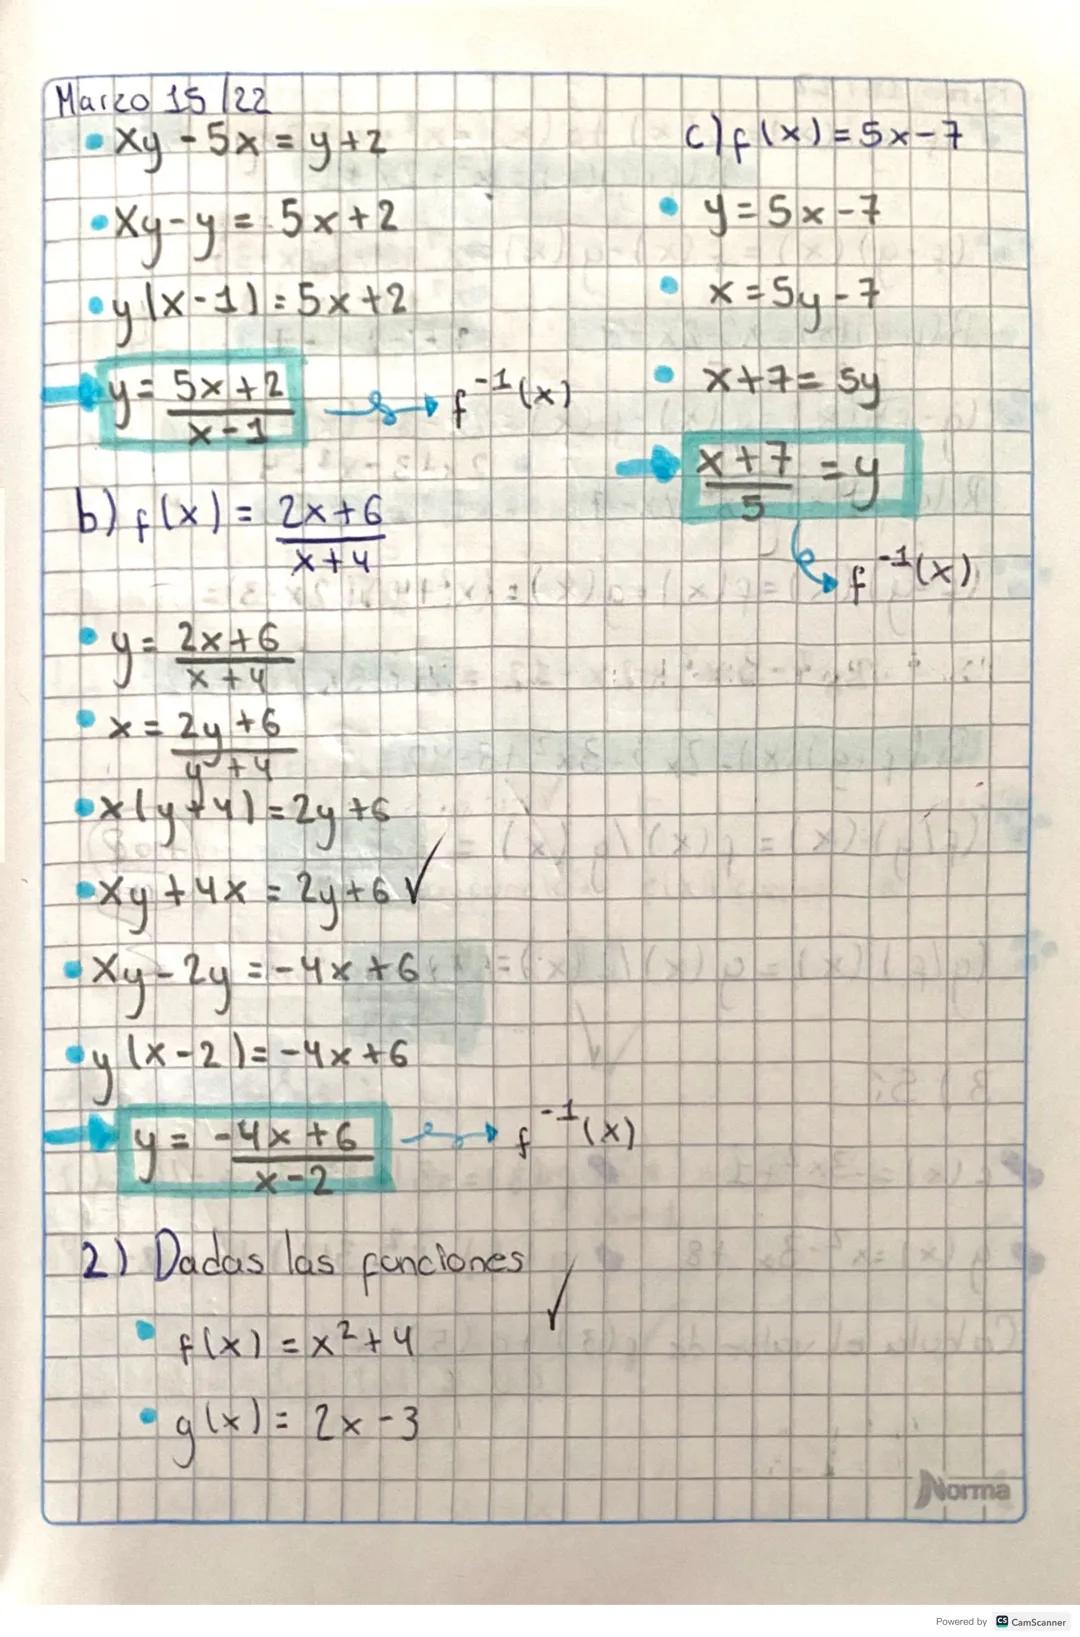 Marzo 15/22
• xy - 5x = y+2
• xy-y = 5x+2
• y(x-1) = 5x+2
y = 5x+2 / x-1 → f⁻¹(x)
b) f(x) = 2x+6 / x+4
• y = 2x+6 / x+4
• x = 2y+6 / y+4
• x(y+4) = 2y+6
• xy+4x = 2y+6 ✓
• xy-2y = -4x+6
• y(x-2) = -4x+6
y = -4x+6 / x-2 → f⁻¹(x)
c) f(x) = 5x-7
• y = 5x-7
• x = 5y-7
• x+7 = 5y
x+7 / 5 = y
f⁻¹(x)
2) Dadas las funciones ✓
• f(x) = x²+4
• g(x) = 2x-3
Norma
Powered by CS CamScanner